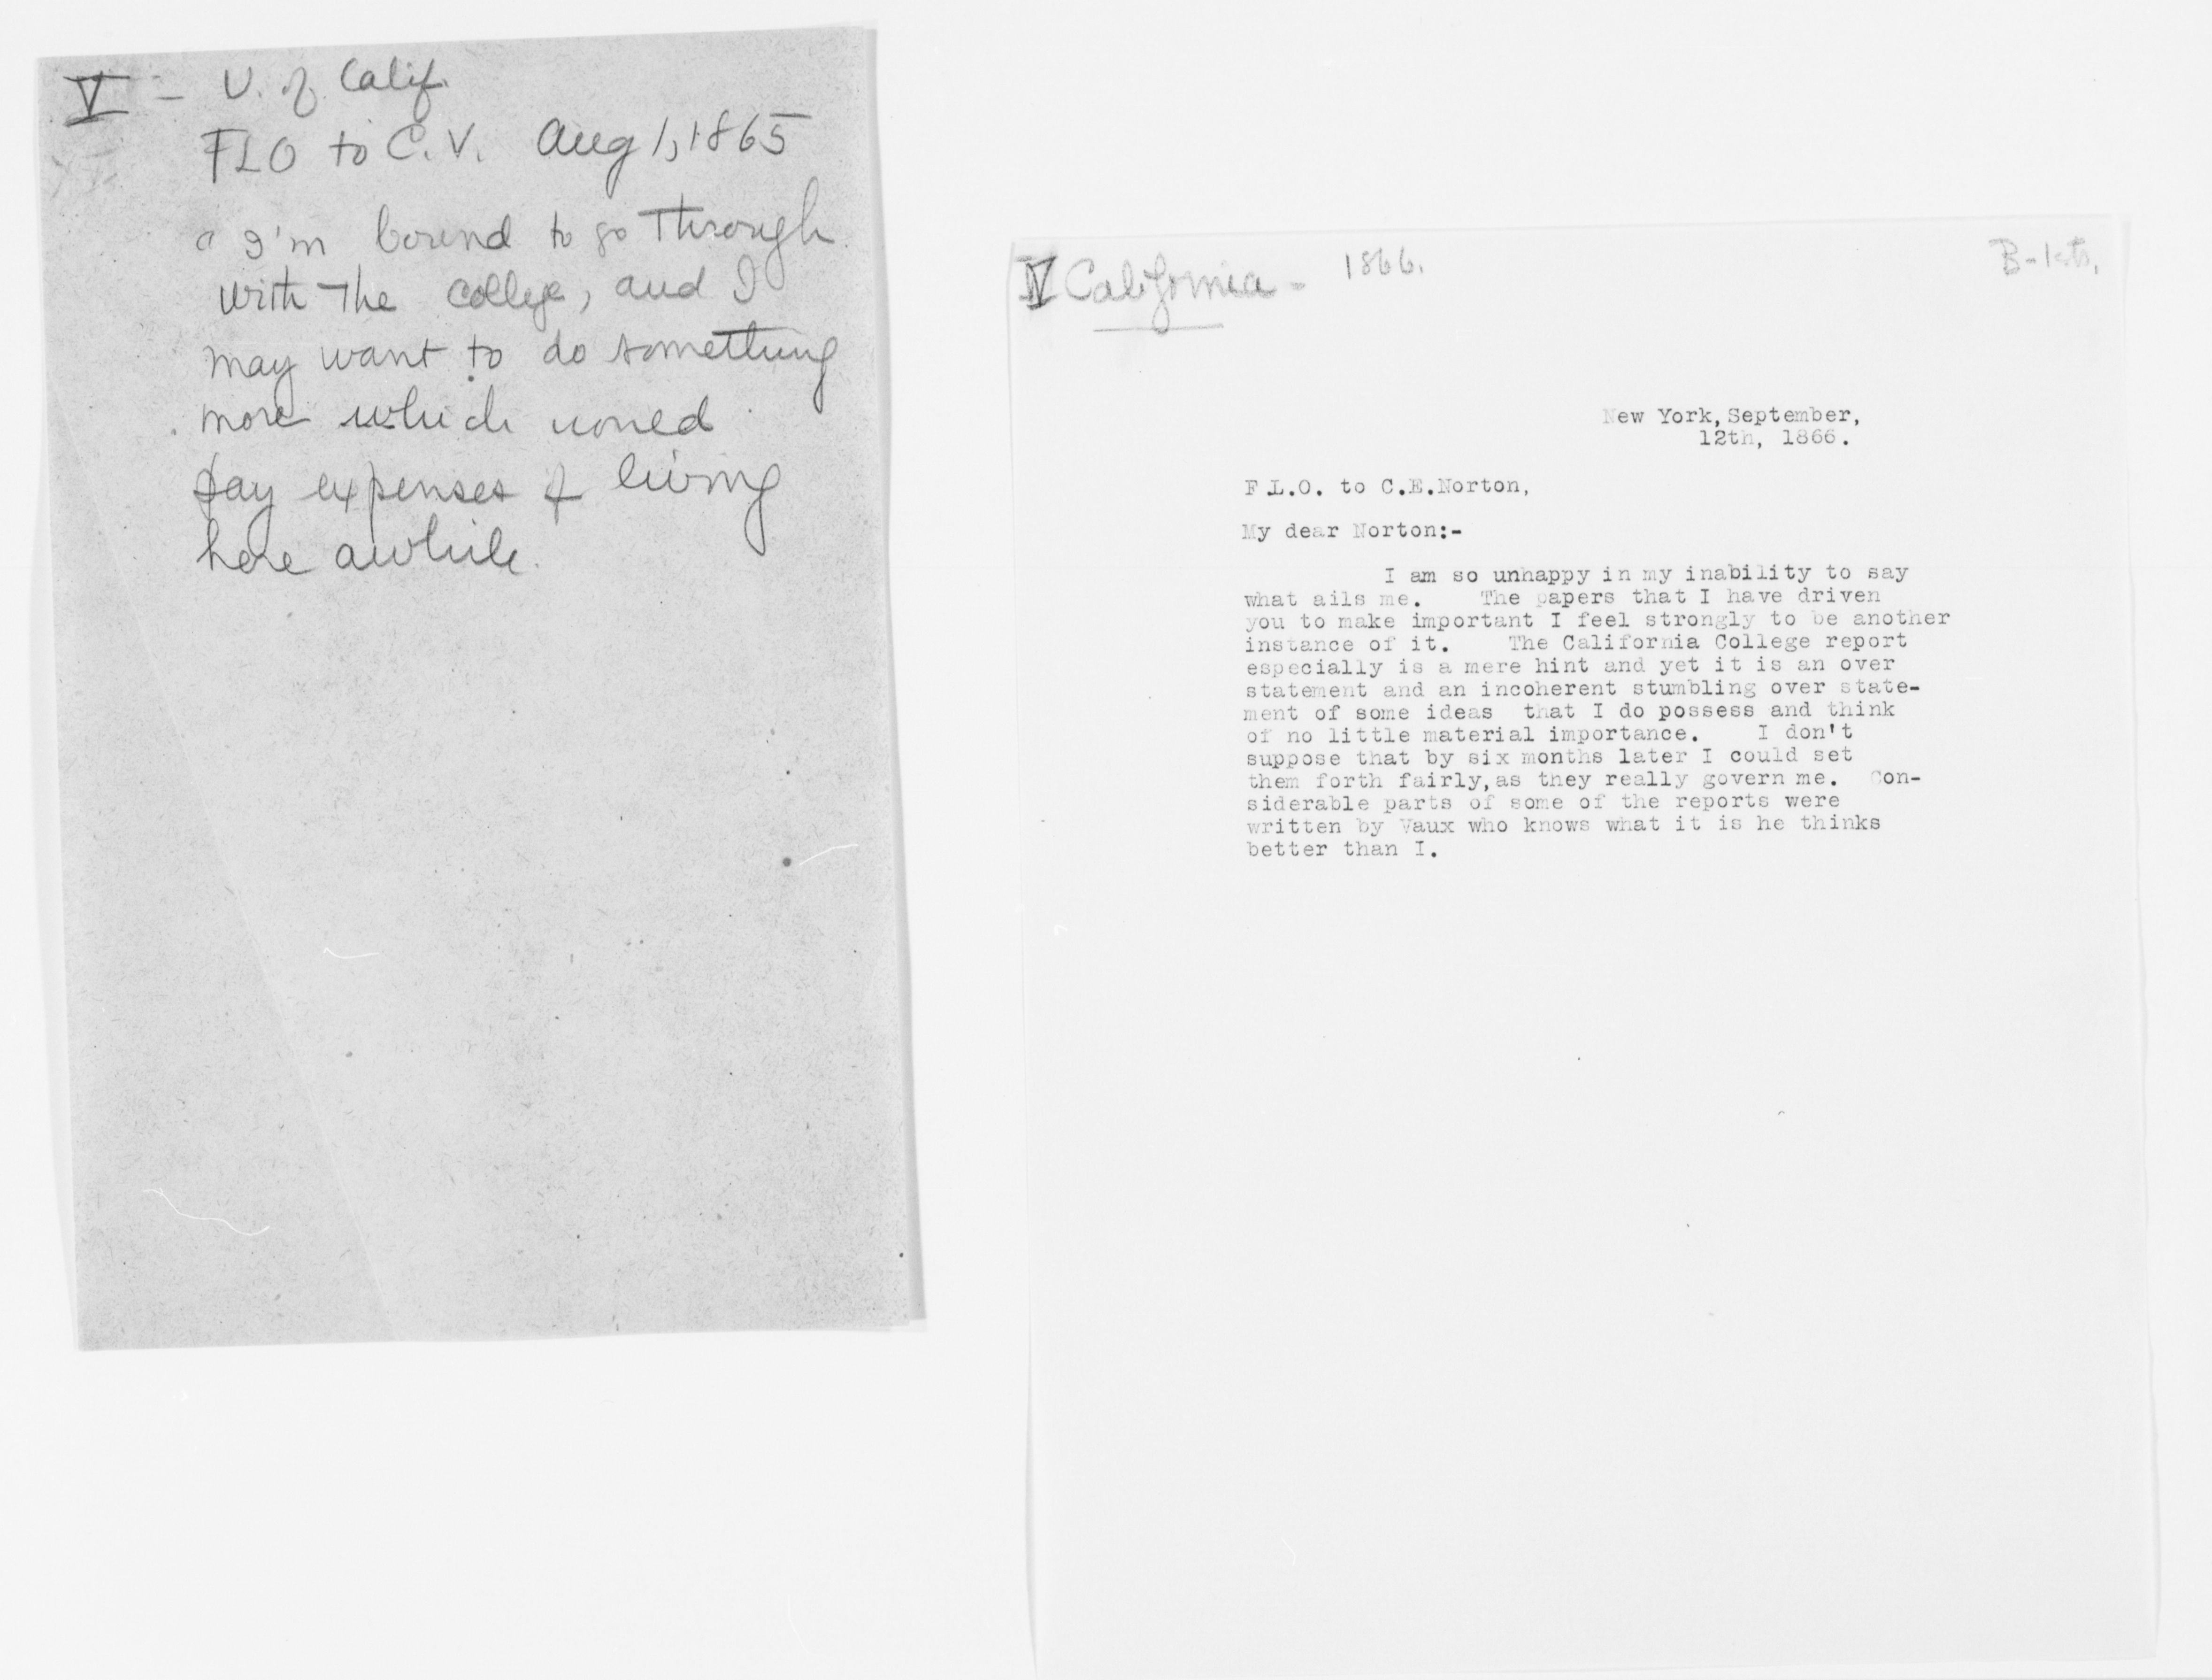 V - U. of Calif.
FLO to C.V. Aug 1, 1865
"I'm bound to go through
with the college, and I
may want to do something
more which would
pay expenses of living
here awhile.
V California - 1866.
New York, September,
12th, 1866.
F.L.O. to C.E.Norton,
My dear Norton:-
I am so unhappy in my inability to say
what ails me. The papers that I have driven
you to make important I feel strongly to be another
instance of it. The California College report
especially is a mere hint and yet it is an over
statement and an incoherent stumbling over state-
ment of some ideas that I do possess and think
of no little material importance. I don't
suppose that by six months later I could set
them forth fairly, as they really govern me. Con-
siderable parts of some of the reports were
written by Vaux who knows what it is he thinks
better than I.